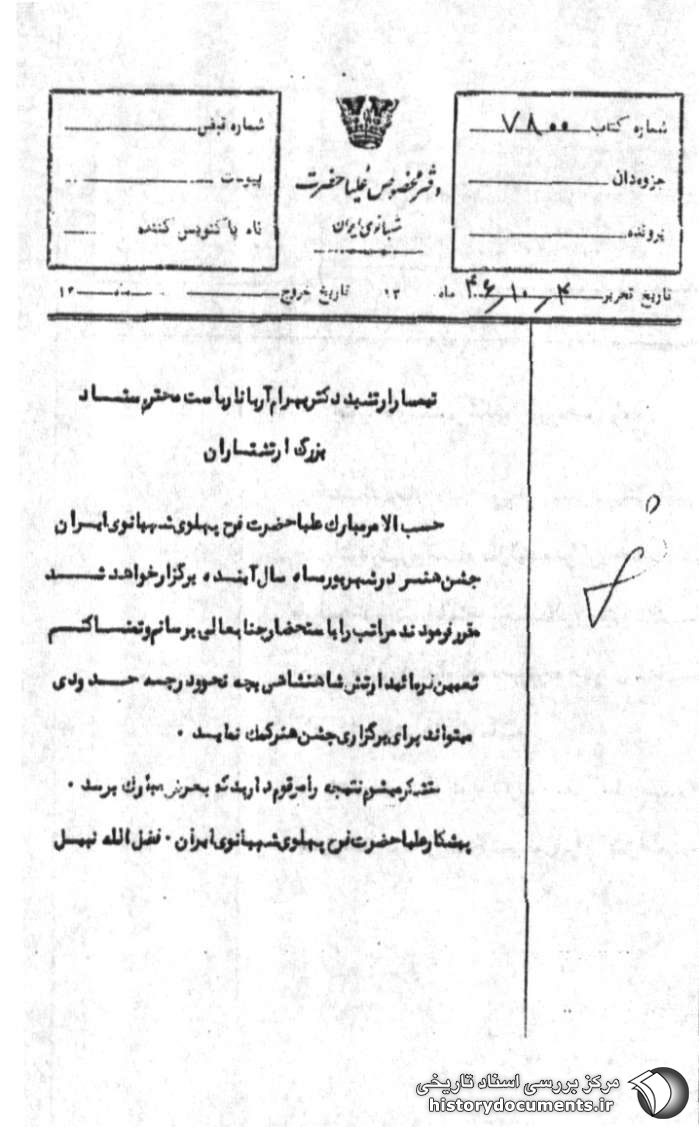 شماره کتاب ۷۸۰۰
جزوه‌دان
پرونده
دفتر مخصوص علیاحضرت
شهبانوی ایران
شماره قبض
پیوست
نام پاکنویس کننده
تاریخ تحریر ۴ / ۱۰ / ۴۶ ماه ۱۳ تاریخ خروج ماه ۱۳
تیمسار ارتشبد دکتر بهرام آریانا ریاست محترم ستاد
بزرگ ارتشتاران
حسب الامر مبارک علیاحضرت فرح پهلوی شهبانوی ایران
جشن هنر در شهریور ماه سال آینده برگزار خواهد شد
مقرر فرمودند مراتب را باستحضار جنابعالی برسانم و تمنا کنم
تعیین فرمائید ارتش شاهنشاهی بچه نحو و درچه حدودی
میتواند برای برگزاری جشن هنر کمک نماید .
متشکر میشوم نتیجه را مرقوم دارید که بعرض مبارک برسد .
پیشکار علیاحضرت فرح پهلوی شهبانوی ایران . فضل الله نبیل
مرکز بررسی اسناد تاریخی
historydocuments.ir